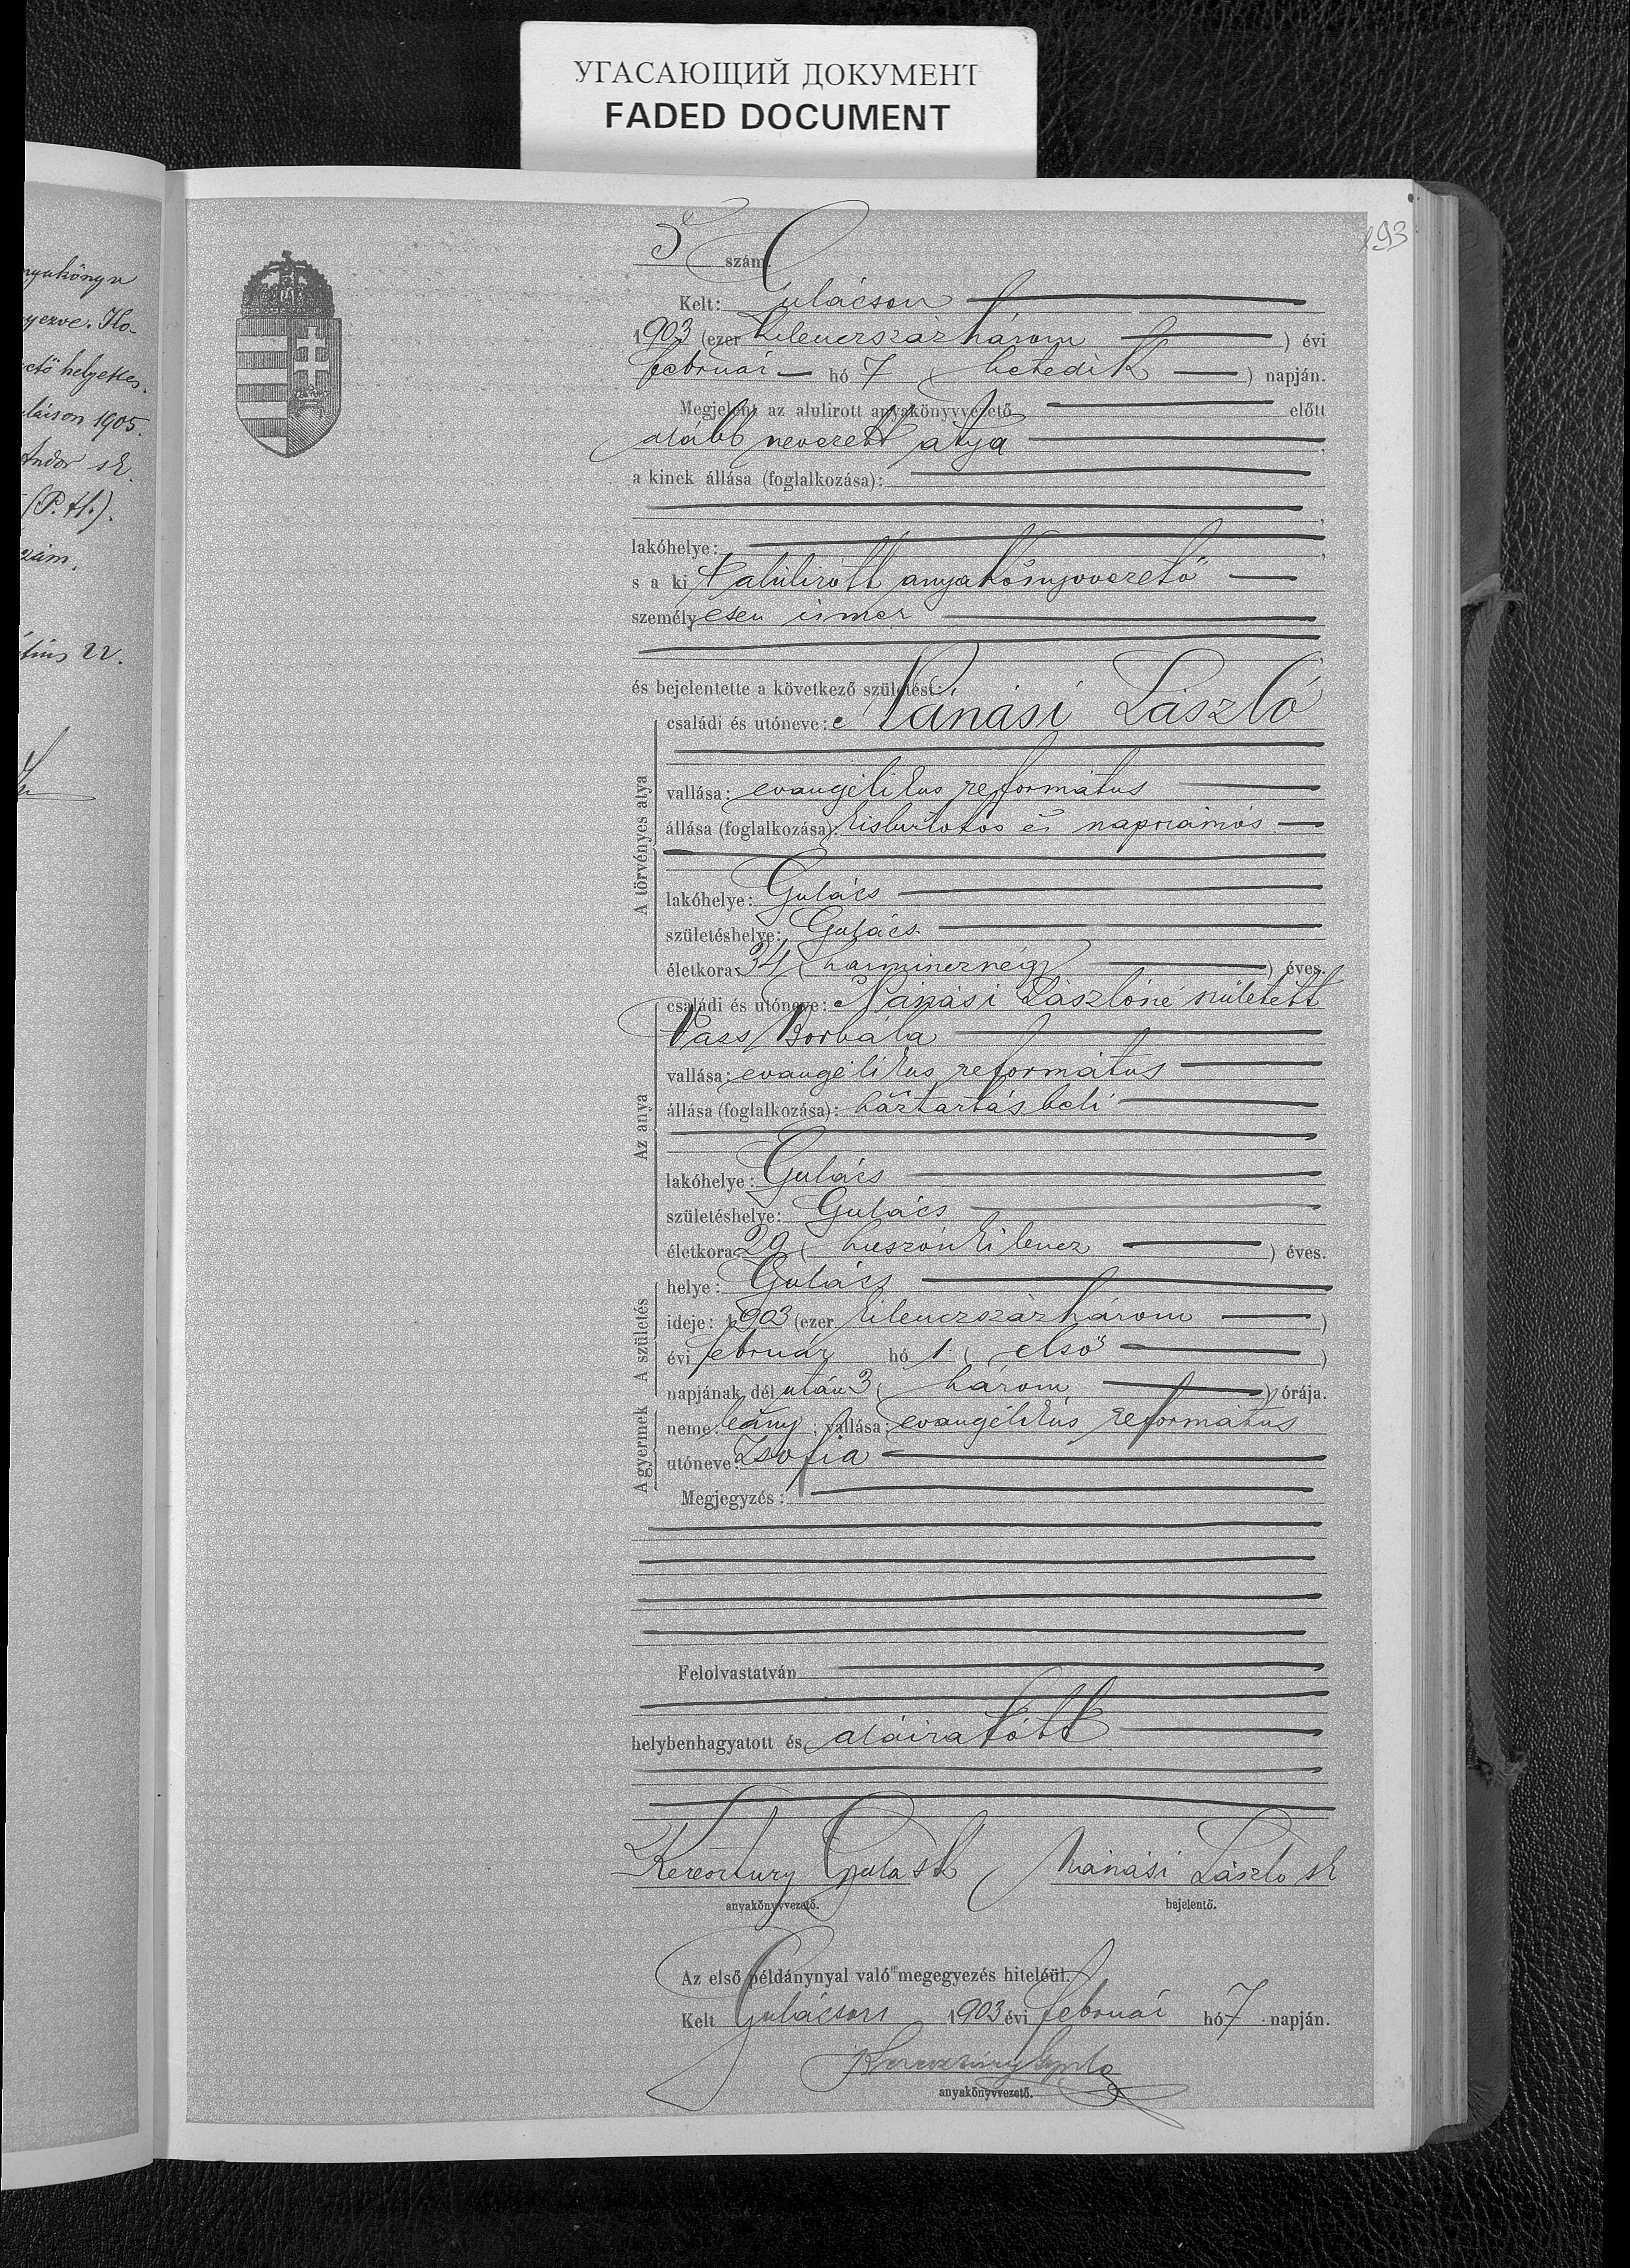 УГАСАЮЩИЙ ДОКУМЕНТ
FADED DOCUMENT
193
5 szám.
Kelt: Gulácson
1903 (ezer kilenczszázhárom ) évi
február hó 7 ( hetedik ) napján.
Megjelent az alulirott anyakönyvvezető előtt
alább nevezett atya
a kinek állása (foglalkozása):
lakóhelye:
s a ki alúlirott anyakönyvvezető
személyesen ismer
és bejelentette a következő születést:
A törvényes atya
családi és utóneve: Nánási László
vallása: evangélikus református
állása (foglalkozása): kisbirtokos és napszámos
lakóhelye: Gulács
születéshelye: Gulács
életkora: 34 ( harmincznégy ) éves.
Az anya
családi és utóneve: Nánási Lászlóné született
Vass Borbála
vallása: evangélikus református
állása (foglalkozása): háztartásbeli
lakóhelye: Gulács
születéshelye: Gulács
életkora: 29 ( huszonkilencz ) éves.
A születés
helye: Gulács
ideje: 1903 (ezer kilenczszázhárom )
évi február hó 1 ( első )
napjának dél után 3 ( három ) órája.
A gyermek
neme: leány; vallása: evangélikus református
utóneve: Zsofia
Megjegyzés:
Felolvastatván
helybenhagyatott és aláiratott
Keresztury Gyula sk Nánási László sk
anyakönyvvezető. bejelentő.
Az első példánynyal való megegyezés hiteléül.
Kelt Gulácson 1903 évi február hó 7 napján.
Keresztury Gyula
anyakönyvvezető.
nyakönyv
ctő helyettes.
1905.
Andor sk.
(P.H.).
22.